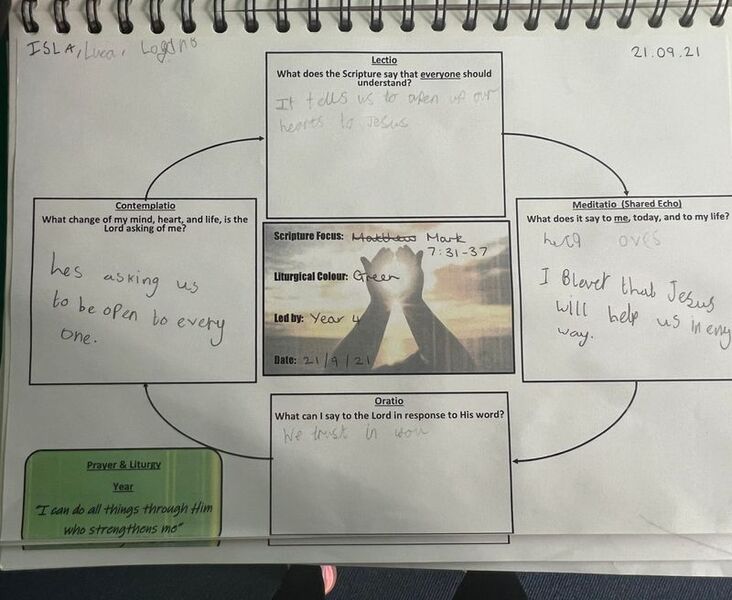 ISLA, Luca, Logan
21.09.21
Lectio
What does the Scripture say that everyone should
understand?
It tells us to open up our
hearts to Jesus
Contemplatio
What change of my mind, heart, and life, is the
Lord asking of me?
hes asking us
to be open to every
one.
Scripture Focus: Matthew Mark
7:31-37
Liturgical Colour: Green
Led by: Year 4
Date: 21/9/21
Meditatio (Shared Echo)
What does it say to me, today, and to my life?
I Blevet that Jesus
will help us in eny
way.
Oratio
What can I say to the Lord in response to His word?
We trust in you
Prayer & Liturgy
Year
"I can do all things through Him
who strengthens me"